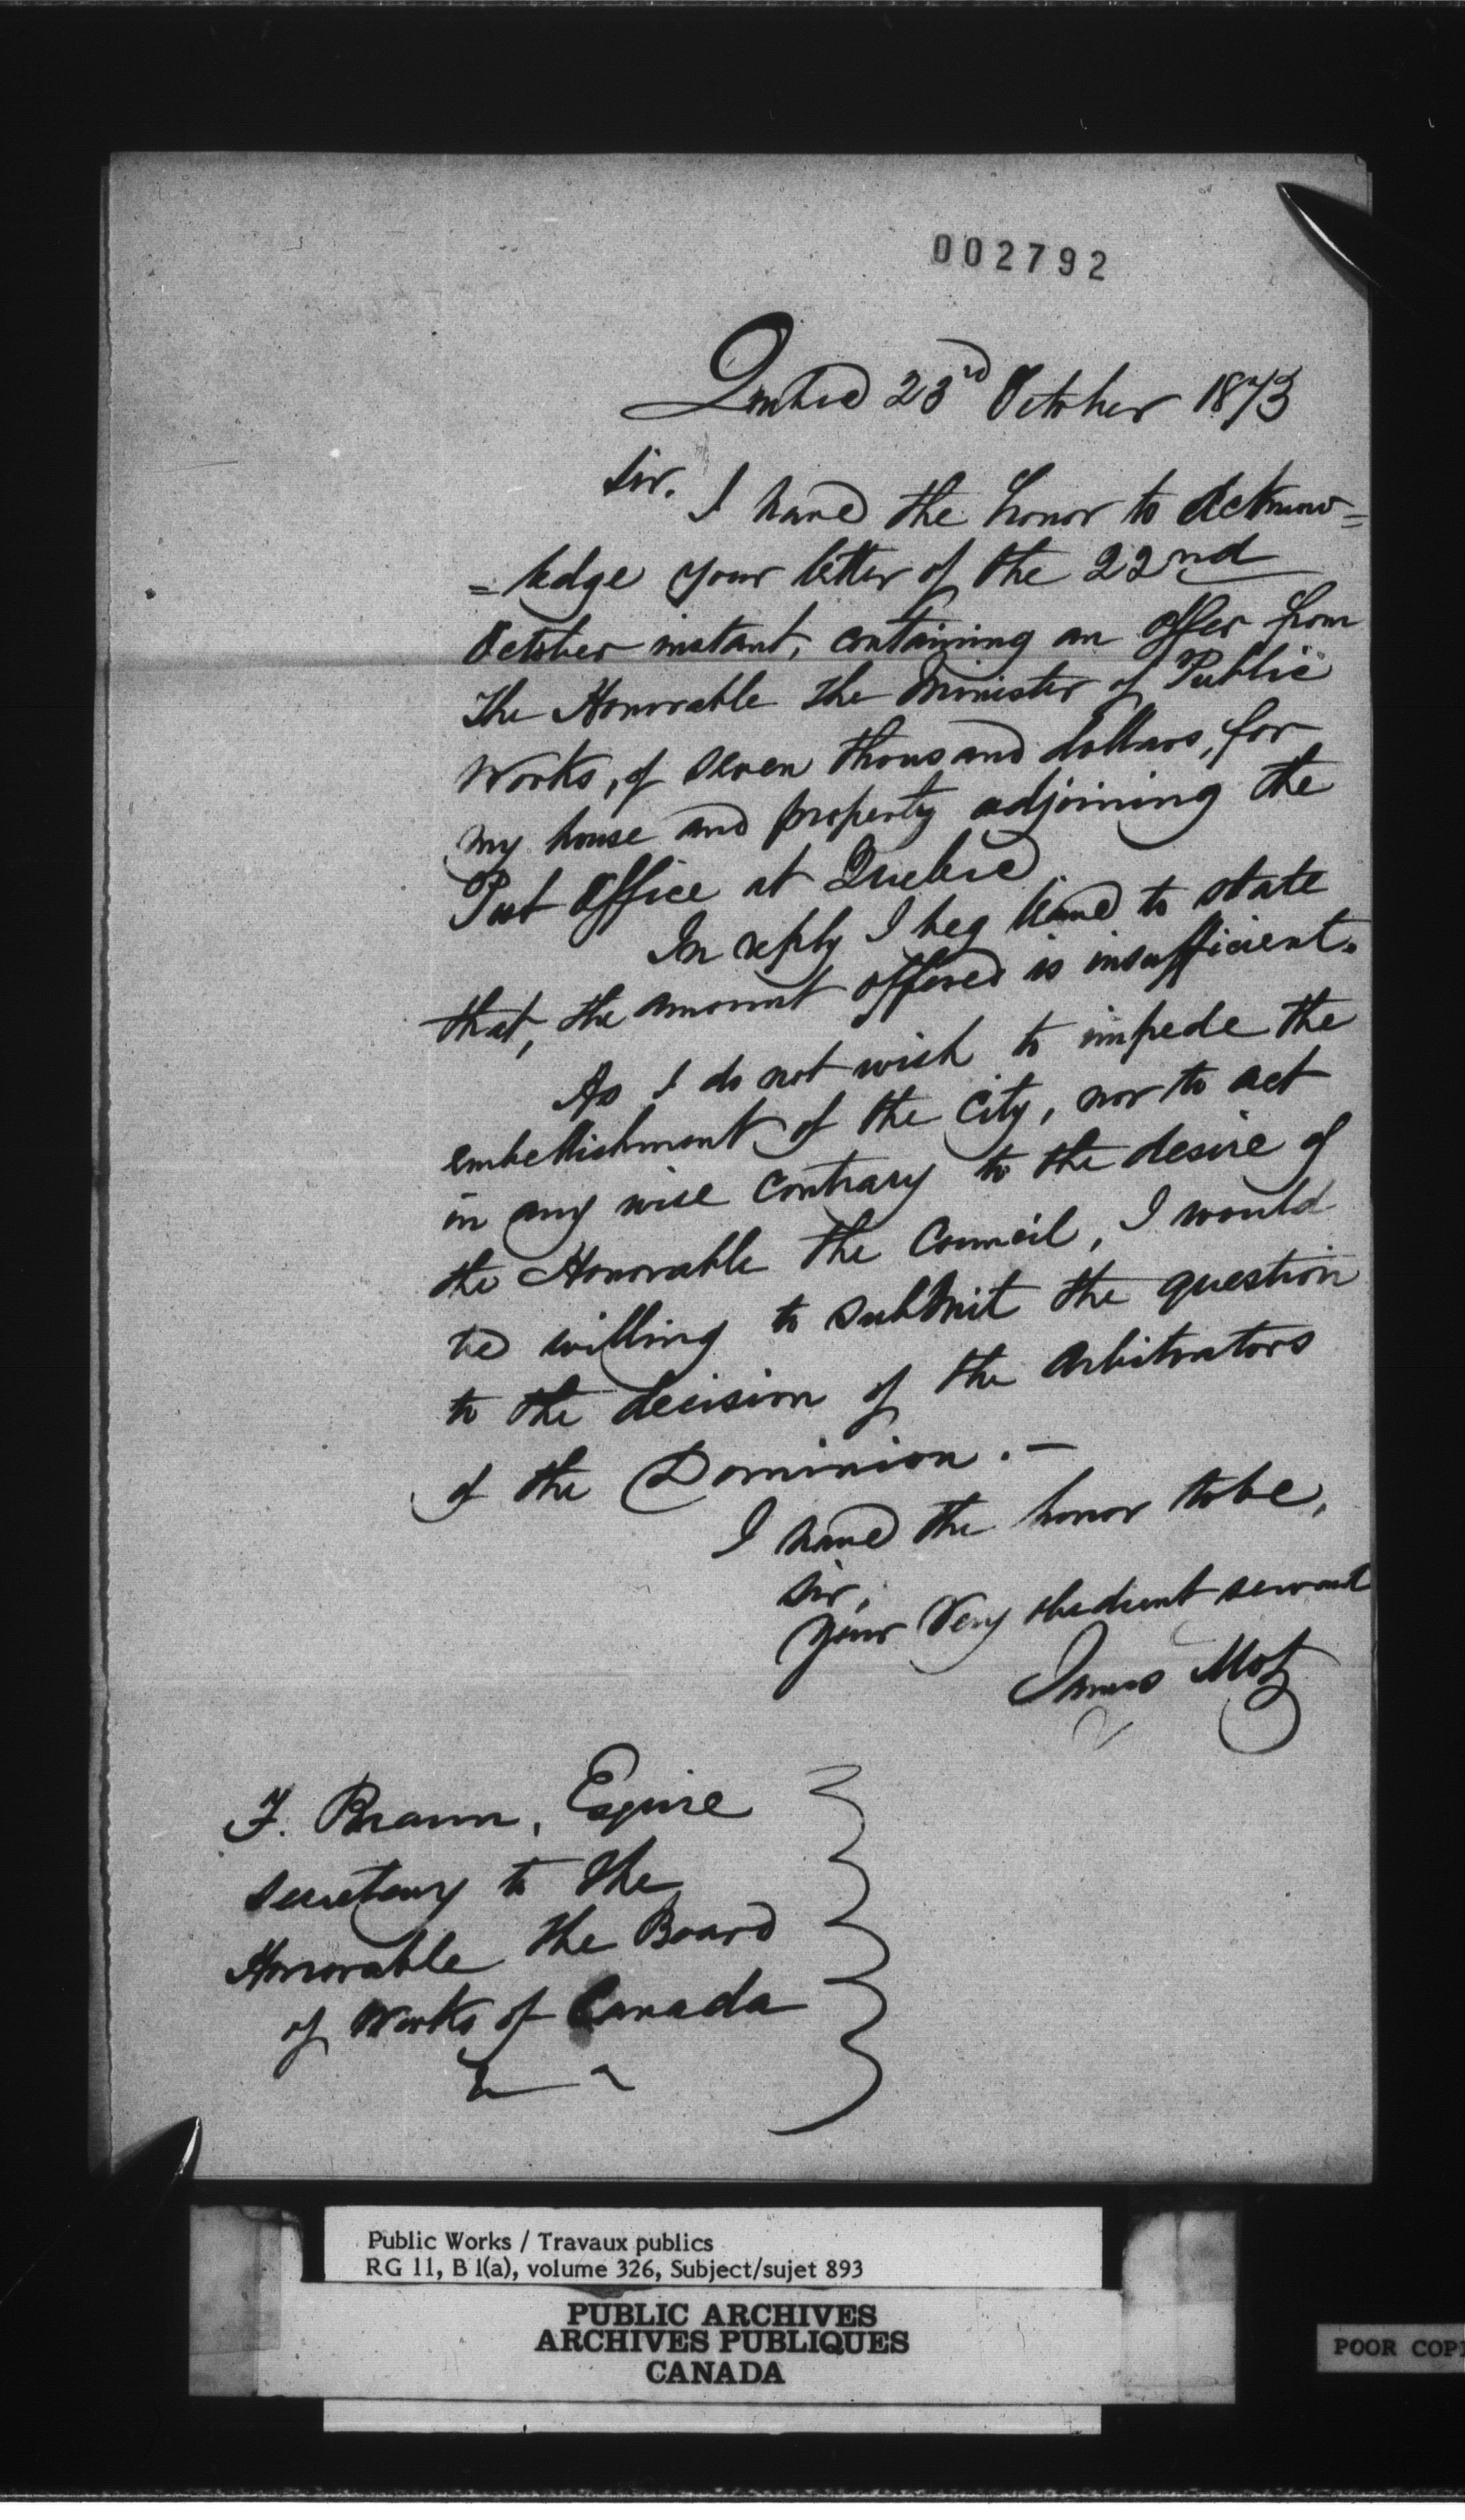 002792
Quebec 23rd October 1873
Sir.
I have the honor to Acknow=
=ledge your letter of the 22nd
October instant, containing an offer from
the Honorable the Minister of Public
Works, of seven thousand dollars, for
my house and property adjoining the
Post Office at Quebec
In reply I beg leave to state
that, the amount offered is insufficient.
As I do not wish to impede the
embellishment of the City, nor to act
in any wise contrary to the desire of
the Honorable the Council, I would
be willing to submit the question
to the decision of the Arbitrators
of the Dominion. —
I have the honor to be,
Sir,
Your Very obedient servant
James Motz
F. Braun, Esquire
Secretary to the
Honorable the Board
of Works of Canada
Public Works / Travaux publics
RG 11, B 1(a), volume 326, Subject/sujet 893
PUBLIC ARCHIVES
ARCHIVES PUBLIQUES
CANADA
POOR COP